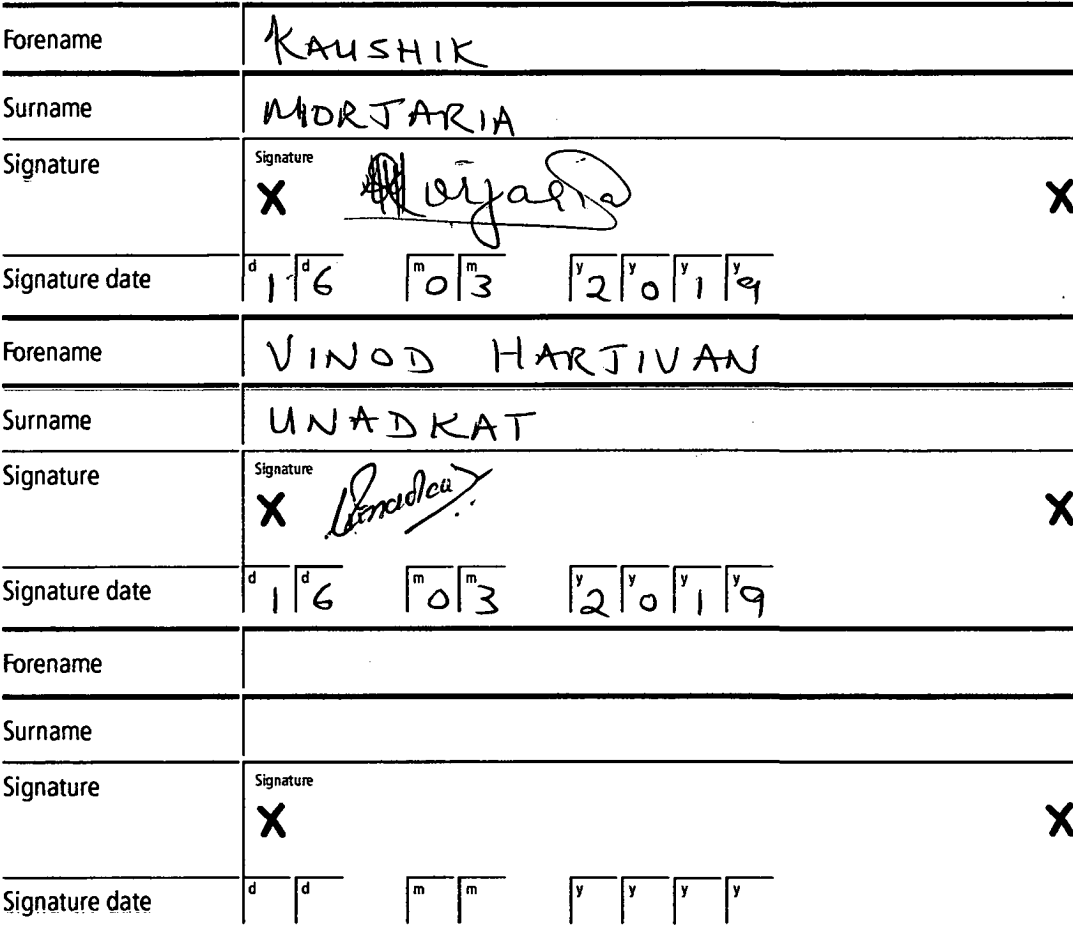 Forename KAUSHIK
Surname MORJARIA
Signature Signature
X Morjaria X
Signature date d 1 d 6 m 0 m 3 y 2 y 0 y 1 y 9
Forename VINOD HARJIVAN
Surname UNADKAT
Signature Signature
X Unadkat X
Signature date d 1 d 6 m 0 m 3 y 2 y 0 y 1 y 9
Forename
Surname
Signature Signature
X X
Signature date d d m m y y y y